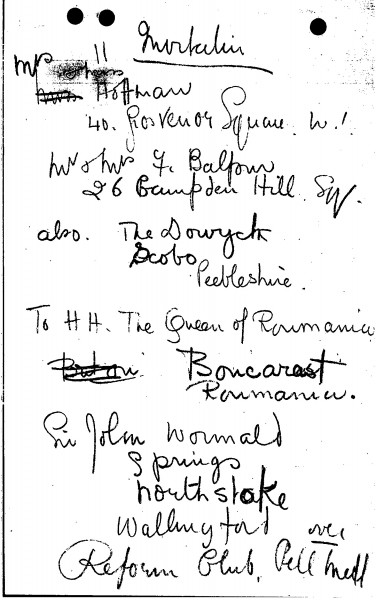 11
Mrs
Hoffman
40. Grosvenor Square. W.1.
Mr & Mrs F. Balfour
26 Campden Hill Sq.
also. The Dowyck
Scobo
Peebleshire.
To HH. The Queen of Roumania
Boncarast
Roumania.
Sir John Wormald
Springs
northstoke
Wallingford
over
Reform Club, Pell Mell